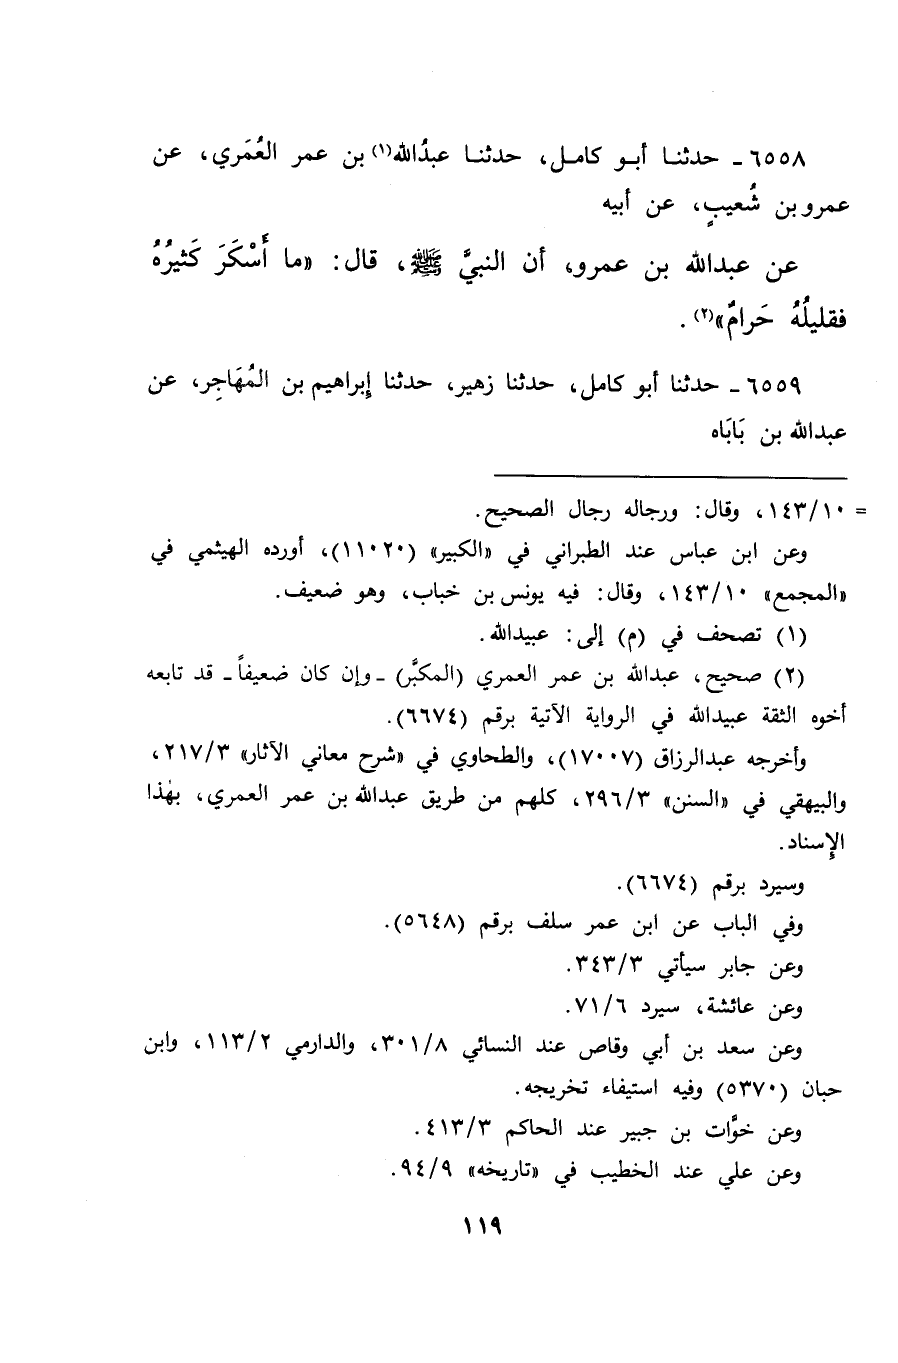 ٦٥٥٨ـ حدثنـا أبـو كامـل، حدثنـا عبدُالله(١) بن عمر العُمَري، عن
عمرو بن شُعيبٍ، عن أبيه
عن عبدالله بن عمرو، أن النبيَّ ﷺ، قال: «ما أَسْكَرَ كَثيرُهُ
فقليلُهُ حَرامٌ»(٢).
٦٥٥٩ـ حدثنا أبو كامل، حدثنا زهير، حدثنا إبراهيم بن المُهَاجِر، عن
عبدالله بن بَابَاه
= ١٤٣/١٠، وقال: ورجاله رجال الصحيح.
وعن ابن عباس عند الطبراني في «الكبير» (١١٠٢٠)، أورده الهيثمي في
«المجمع» ١٤٣/١٠، وقال: فيه يونس بن خباب، وهو ضعيف.
(١) تصحف في (م) إلى: عبيدالله.
(٢) صحيح، عبدالله بن عمر العمري (المكبَّر) ـ وإن كان ضعيفاً ـ قد تابعه
أخوه الثقة عبيدالله في الرواية الآتية برقم (٦٦٧٤).
وأخرجه عبدالرزاق (١٧٠٠٧)، والطحاوي في «شرح معاني الآثار» ٢١٧/٣،
والبيهقي في «السنن» ٢٩٦/٣، كلهم من طريق عبدالله بن عمر العمري، بهٰذا
الإِسناد.
وسيرد برقم (٦٦٧٤).
وفي الباب عن ابن عمر سلف برقم (٥٦٤٨).
وعن جابر سيأتي ٣٤٣/٣.
وعن عائشة، سيرد ٧١/٦.
وعن سعد بن أبي وقاص عند النسائي ٣٠١/٨، والدارمي ١١٣/٢، وابن
حبان (٥٣٧٠) وفيه استيفاء تخريجه.
وعن خوَّات بن جبير عند الحاكم ٤١٣/٣.
وعن علي عند الخطيب في «تاريخه» ٩٤/٩.
١١٩